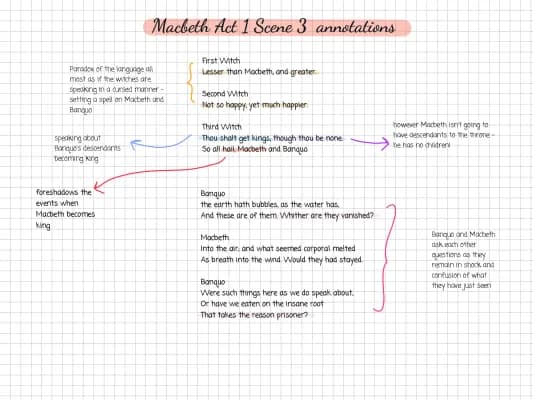 Macbeth Act 1 Scene 3 annotations
First Witch
Lesser than Macbeth, and greater.
Second Witch
Not so happy, yet much happier.
Third Witch
Thou shalt get kings, though thou be none.
So all hail, Macbeth and Banquo
Paradox of the language all
most as if the witches are
speaking in a cursed manner -
setting a spell on Macbeth and
Banquo
speaking about
Banquo's descendants
becoming king
however Macbeth isn't going to
have descendants to the throne -
he has no children!
foreshadows the
events when
Macbeth becomes
king
Banquo
the earth hath bubbles, as the water has,
And these are of them. Whither are they vanished?
Macbeth
Into the air, and what seemed corporal melted
As breath into the wind. Would they had stayed.
Banquo
Were such things here as we do speak about,
Or have we eaten on the insane root
That takes the reason prisoner?
Banquo and Macbeth
ask each other
questions as they
remain in shock and
confusion of what
they have just seen